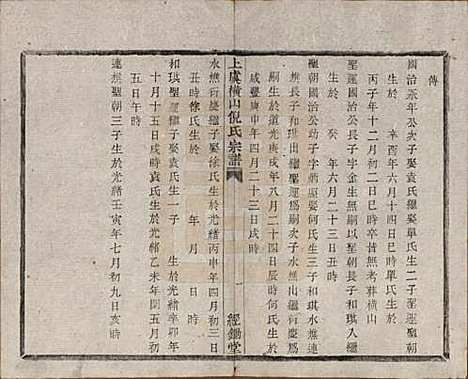 傳
國治 公次子娶袁氏繼娶單氏生二子聖運聖朝
生於 辛酉年六月十四日巳時單氏生於
丙子年十二月初二日巳時卒普無考葬橫山
聖運國治公長子字金生無嗣以聖朝長子和琪入繼
生於 癸 年六月二十三日丑時
聖朝國治公幼子字 娶何氏生三子和琪水樵連
樵長子和琪出繼聖運爲嗣次子水樵出繼何慶爲
嗣生於道光庚戌年八月二十四日辰時何氏生於
咸豐庚申年四月二十三日戌時
上虞橫山倪氏宗譜
一
經鋤堂
水樵 繼子娶徐氏生於光緒丙申年四月初三日
丑時徐氏生於 年 月 日 時
和琪聖運繼子娶袁氏生一子 生於光緒辛卯年
十月十五日戌時袁氏生於光緒乙未年閏五月初
五日午時
連樵聖朝三子生於光緒壬寅年七月初九日亥時